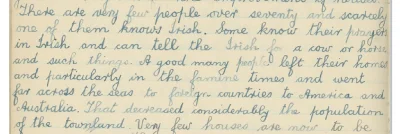 There are very few people over seventy and scarcely
one of them knows Irish. Some know their prayers
in Irish and can tell the Irish for a cow or horse
and such things. A good many people left their homes
and particularly in the famine times and went
far across the seas to foreign countries to America and
Australia. That decreased considerably the population
of the townland. Very few houses are now to be